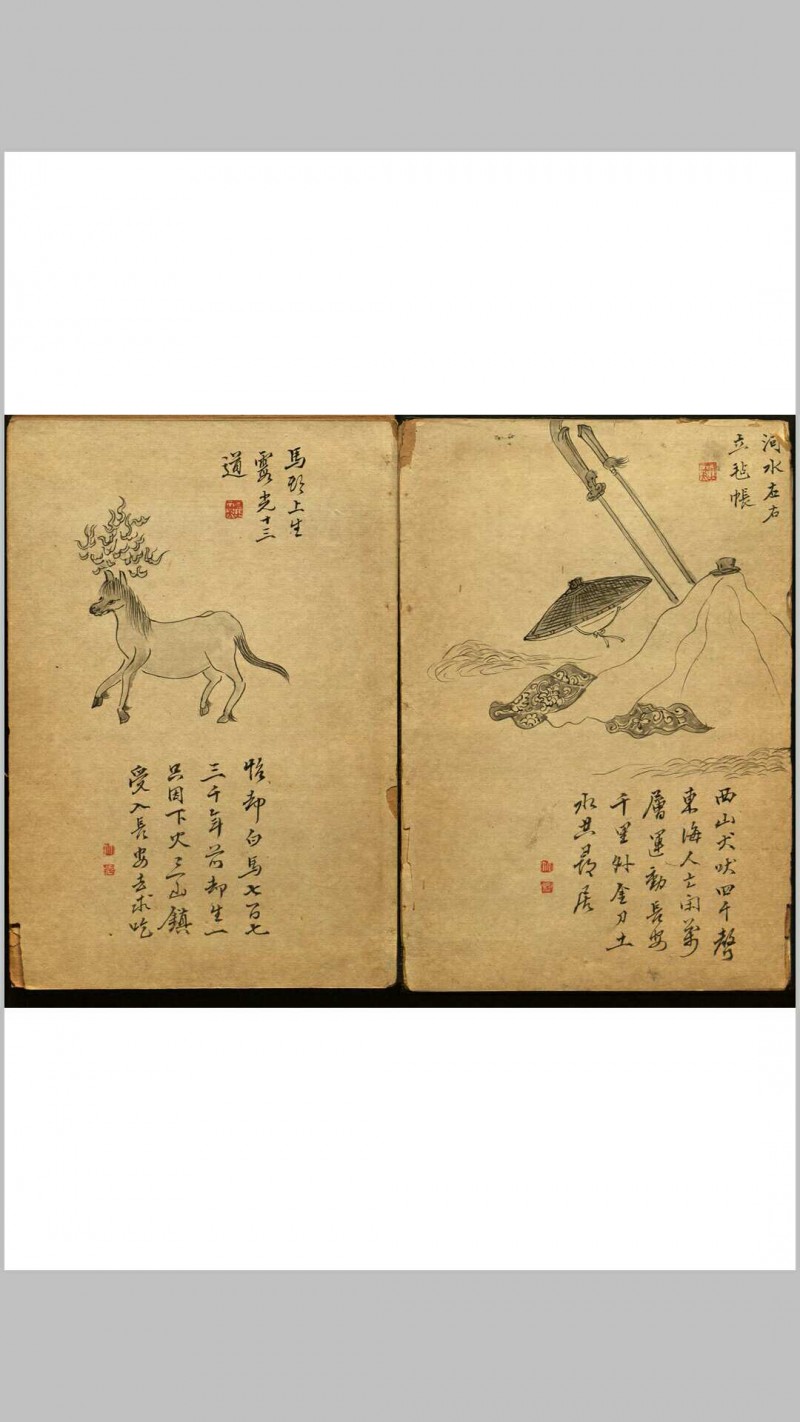 河水左右
立毡帳
西山犬吠四千聲
東海人亡闹萬
層運動長安
千里外金刀土
水共尋居
馬頭上生
靈光十三
道
恪却白馬七百七
三千年前却生一
只因下火三山鎮
受入長安去求吃